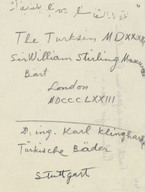 The Turks in MDXXX
Sir William Stirling Maxwell
Bart
London
MDCCCLXXIII
D. ing. Karl Klinghardt
Türkische Bäder
Stuttgart